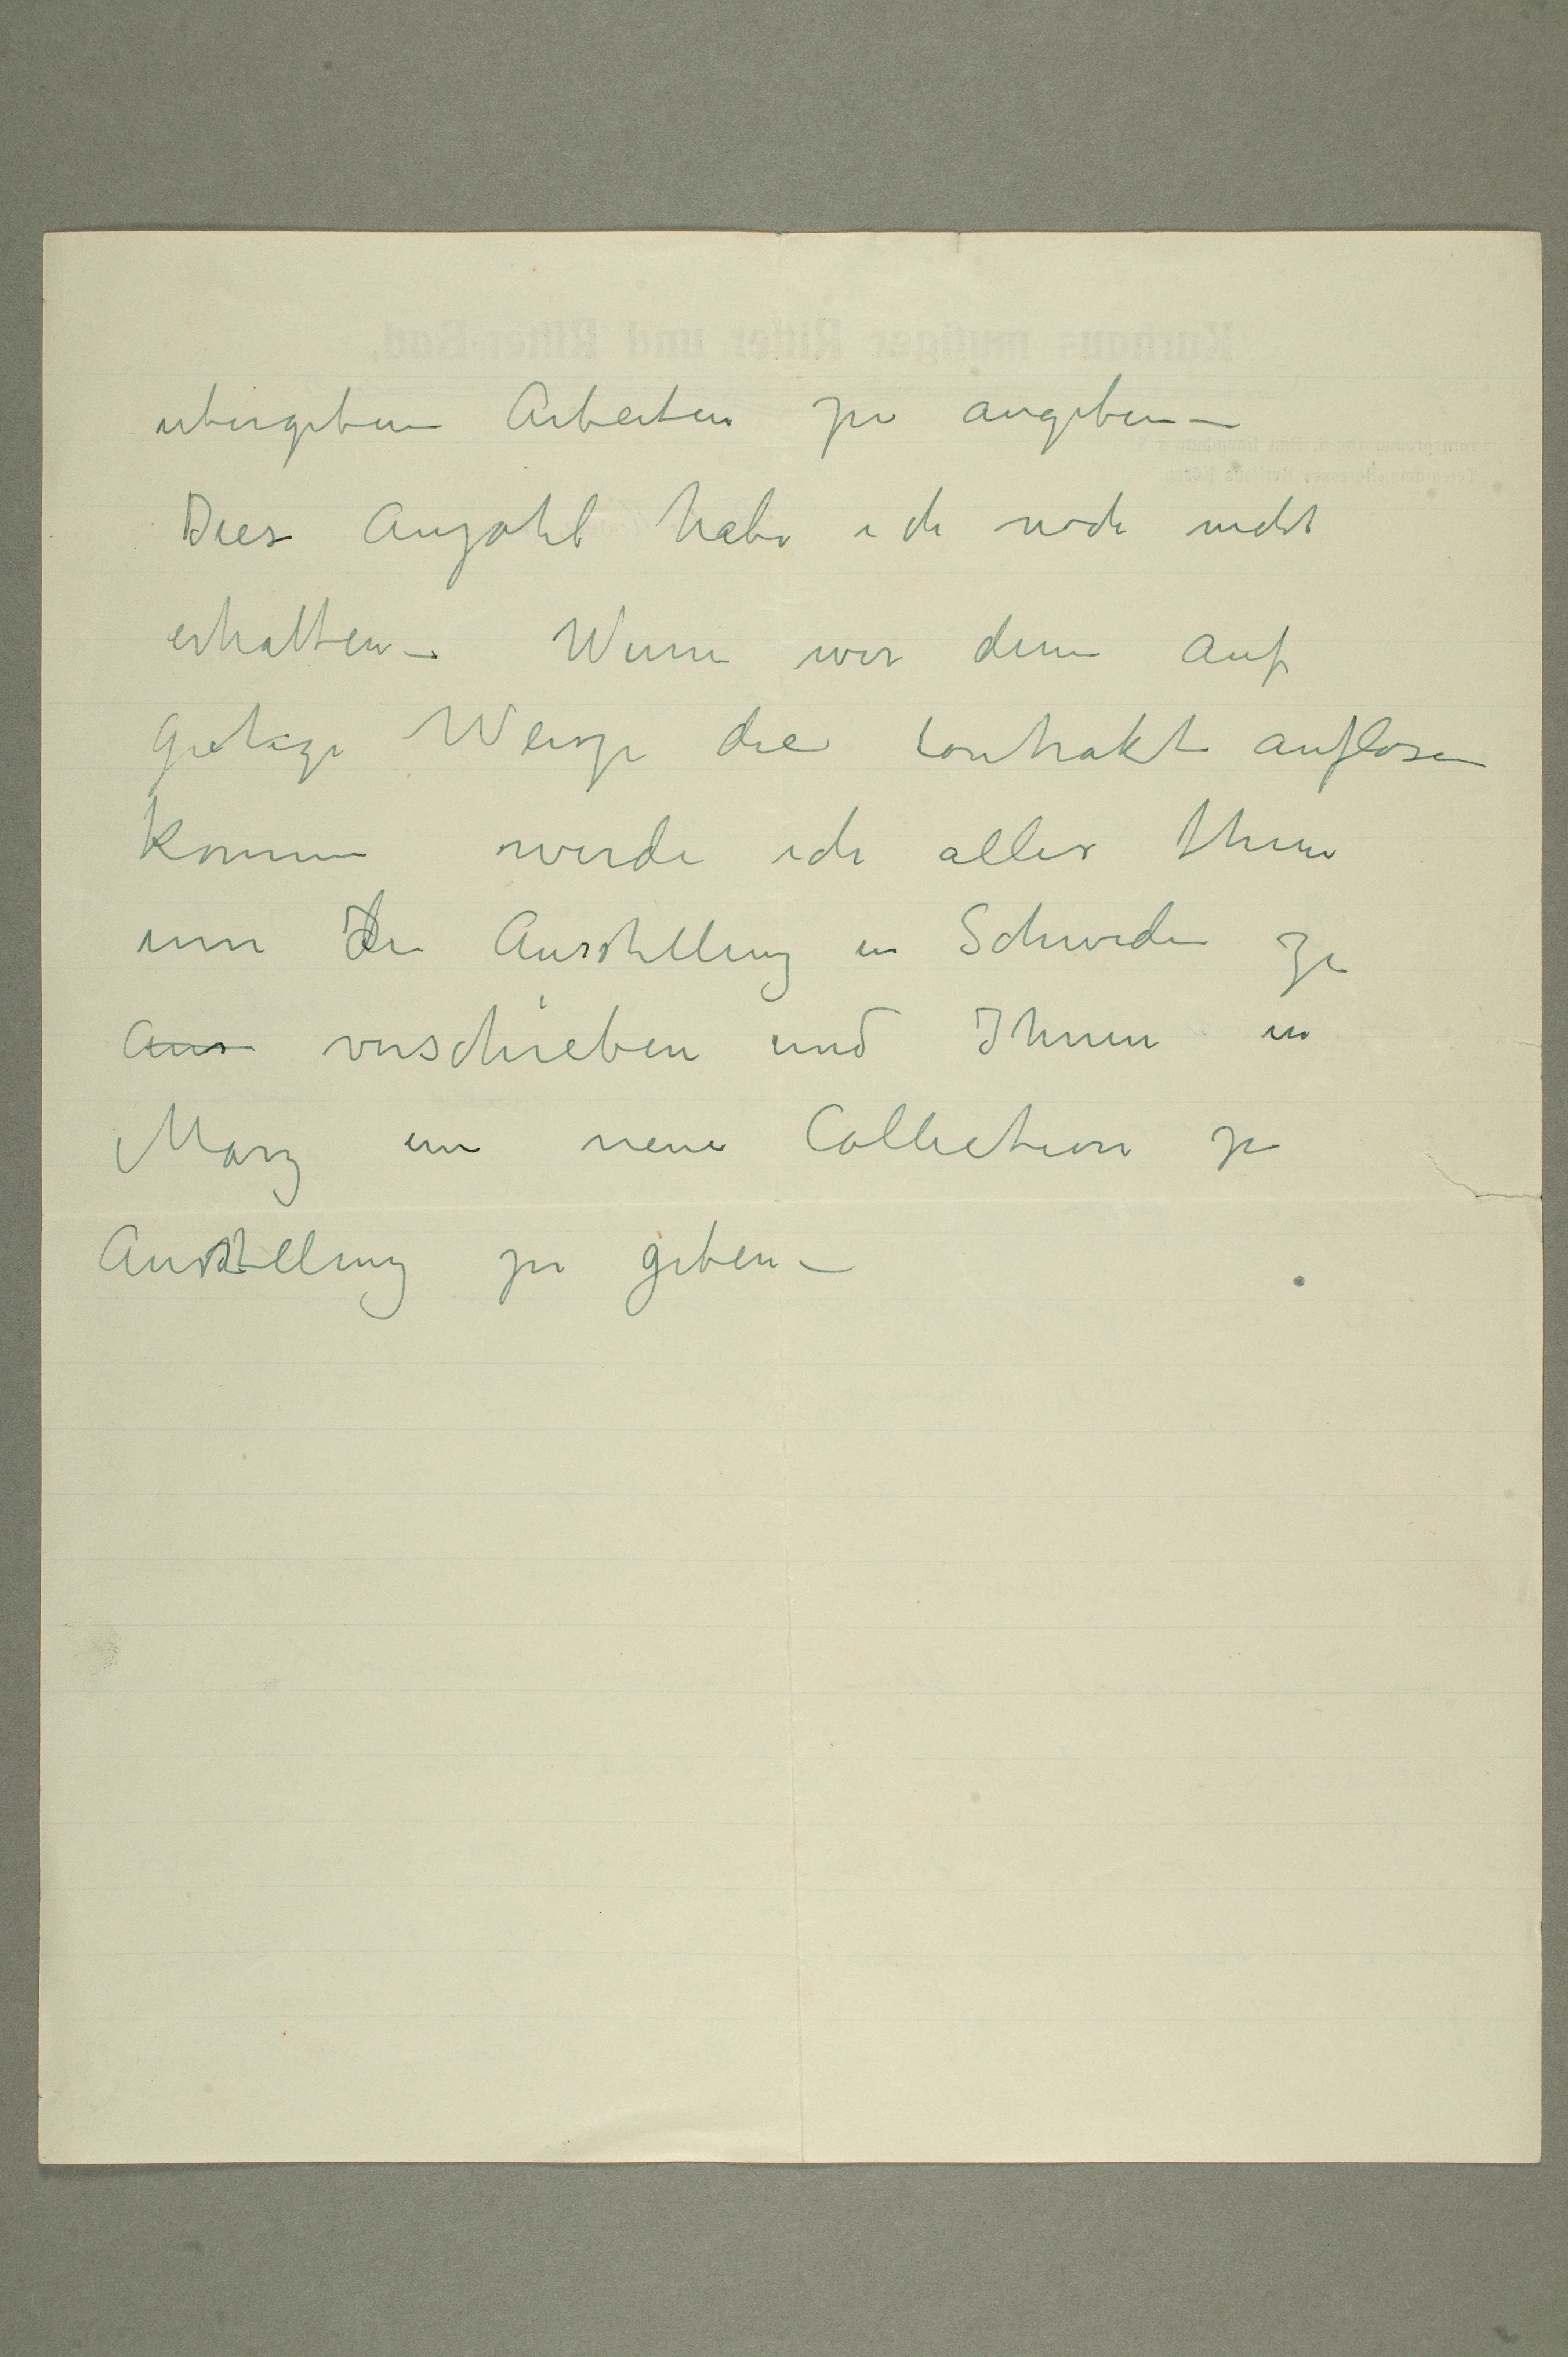 ubergebene Arbeiten zu angeben —
Diese Anzahl habe ich noch nicht
erhalten — Wenn wir denn auf
Weize die Contrakt auflosen
konnen werde ich alles thun
um die Ausstellung in Schweden zu
aus verschieben und Ihnen in
Marz eine neue Collection zu
Ausstellung zu geben —